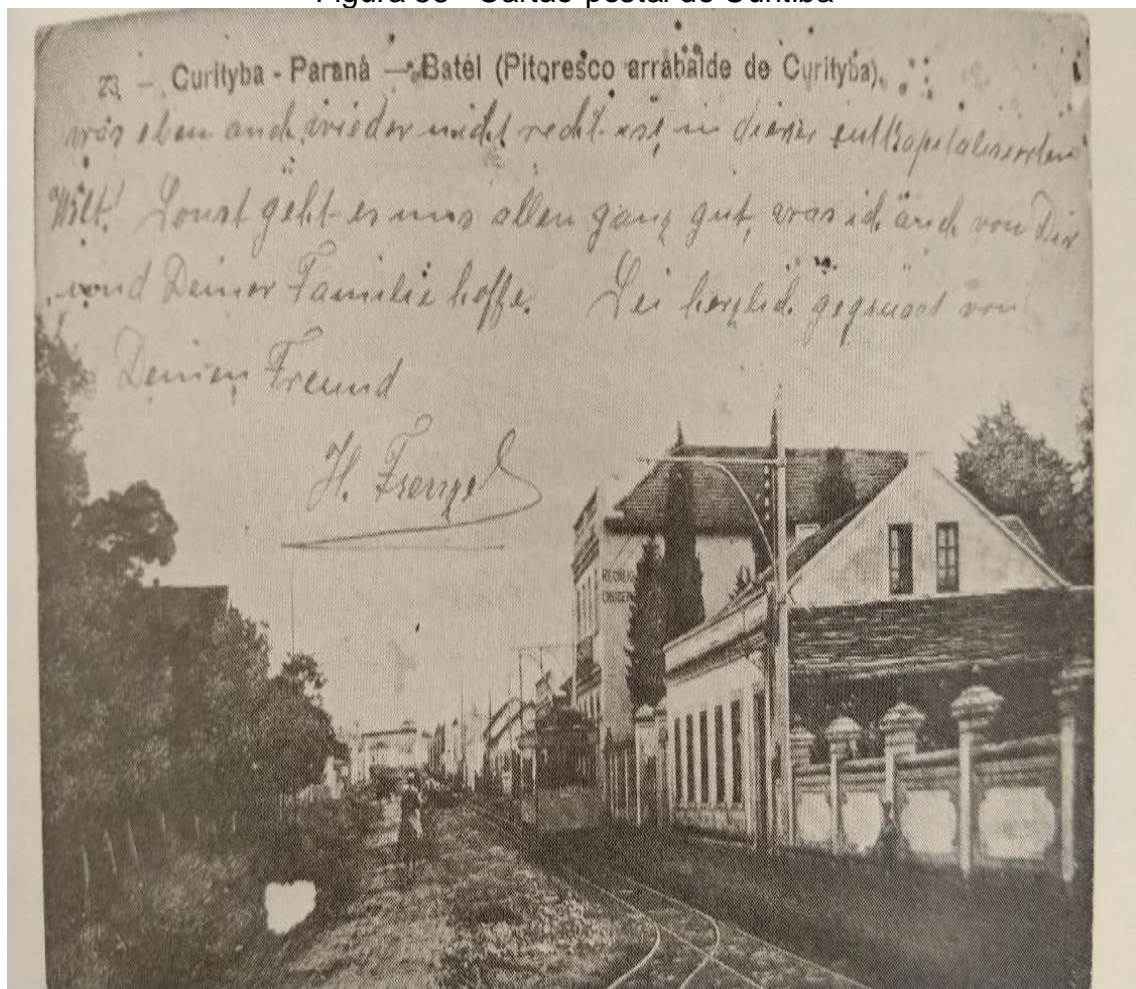 Figura 38 - Cartão-postal de Curitiba
23 - Curityba - Paraná - Batél (Pitoresco arrabalde de Curityba)
was eben auch wieder nicht recht ist, in dieser
Welt! Sonst geht es uns allen ganz gut, was ich auch von Dir
und Deiner Familie hoffe. Sei herzlich gegrüsst von
Deinem Freund
H. Frenzel